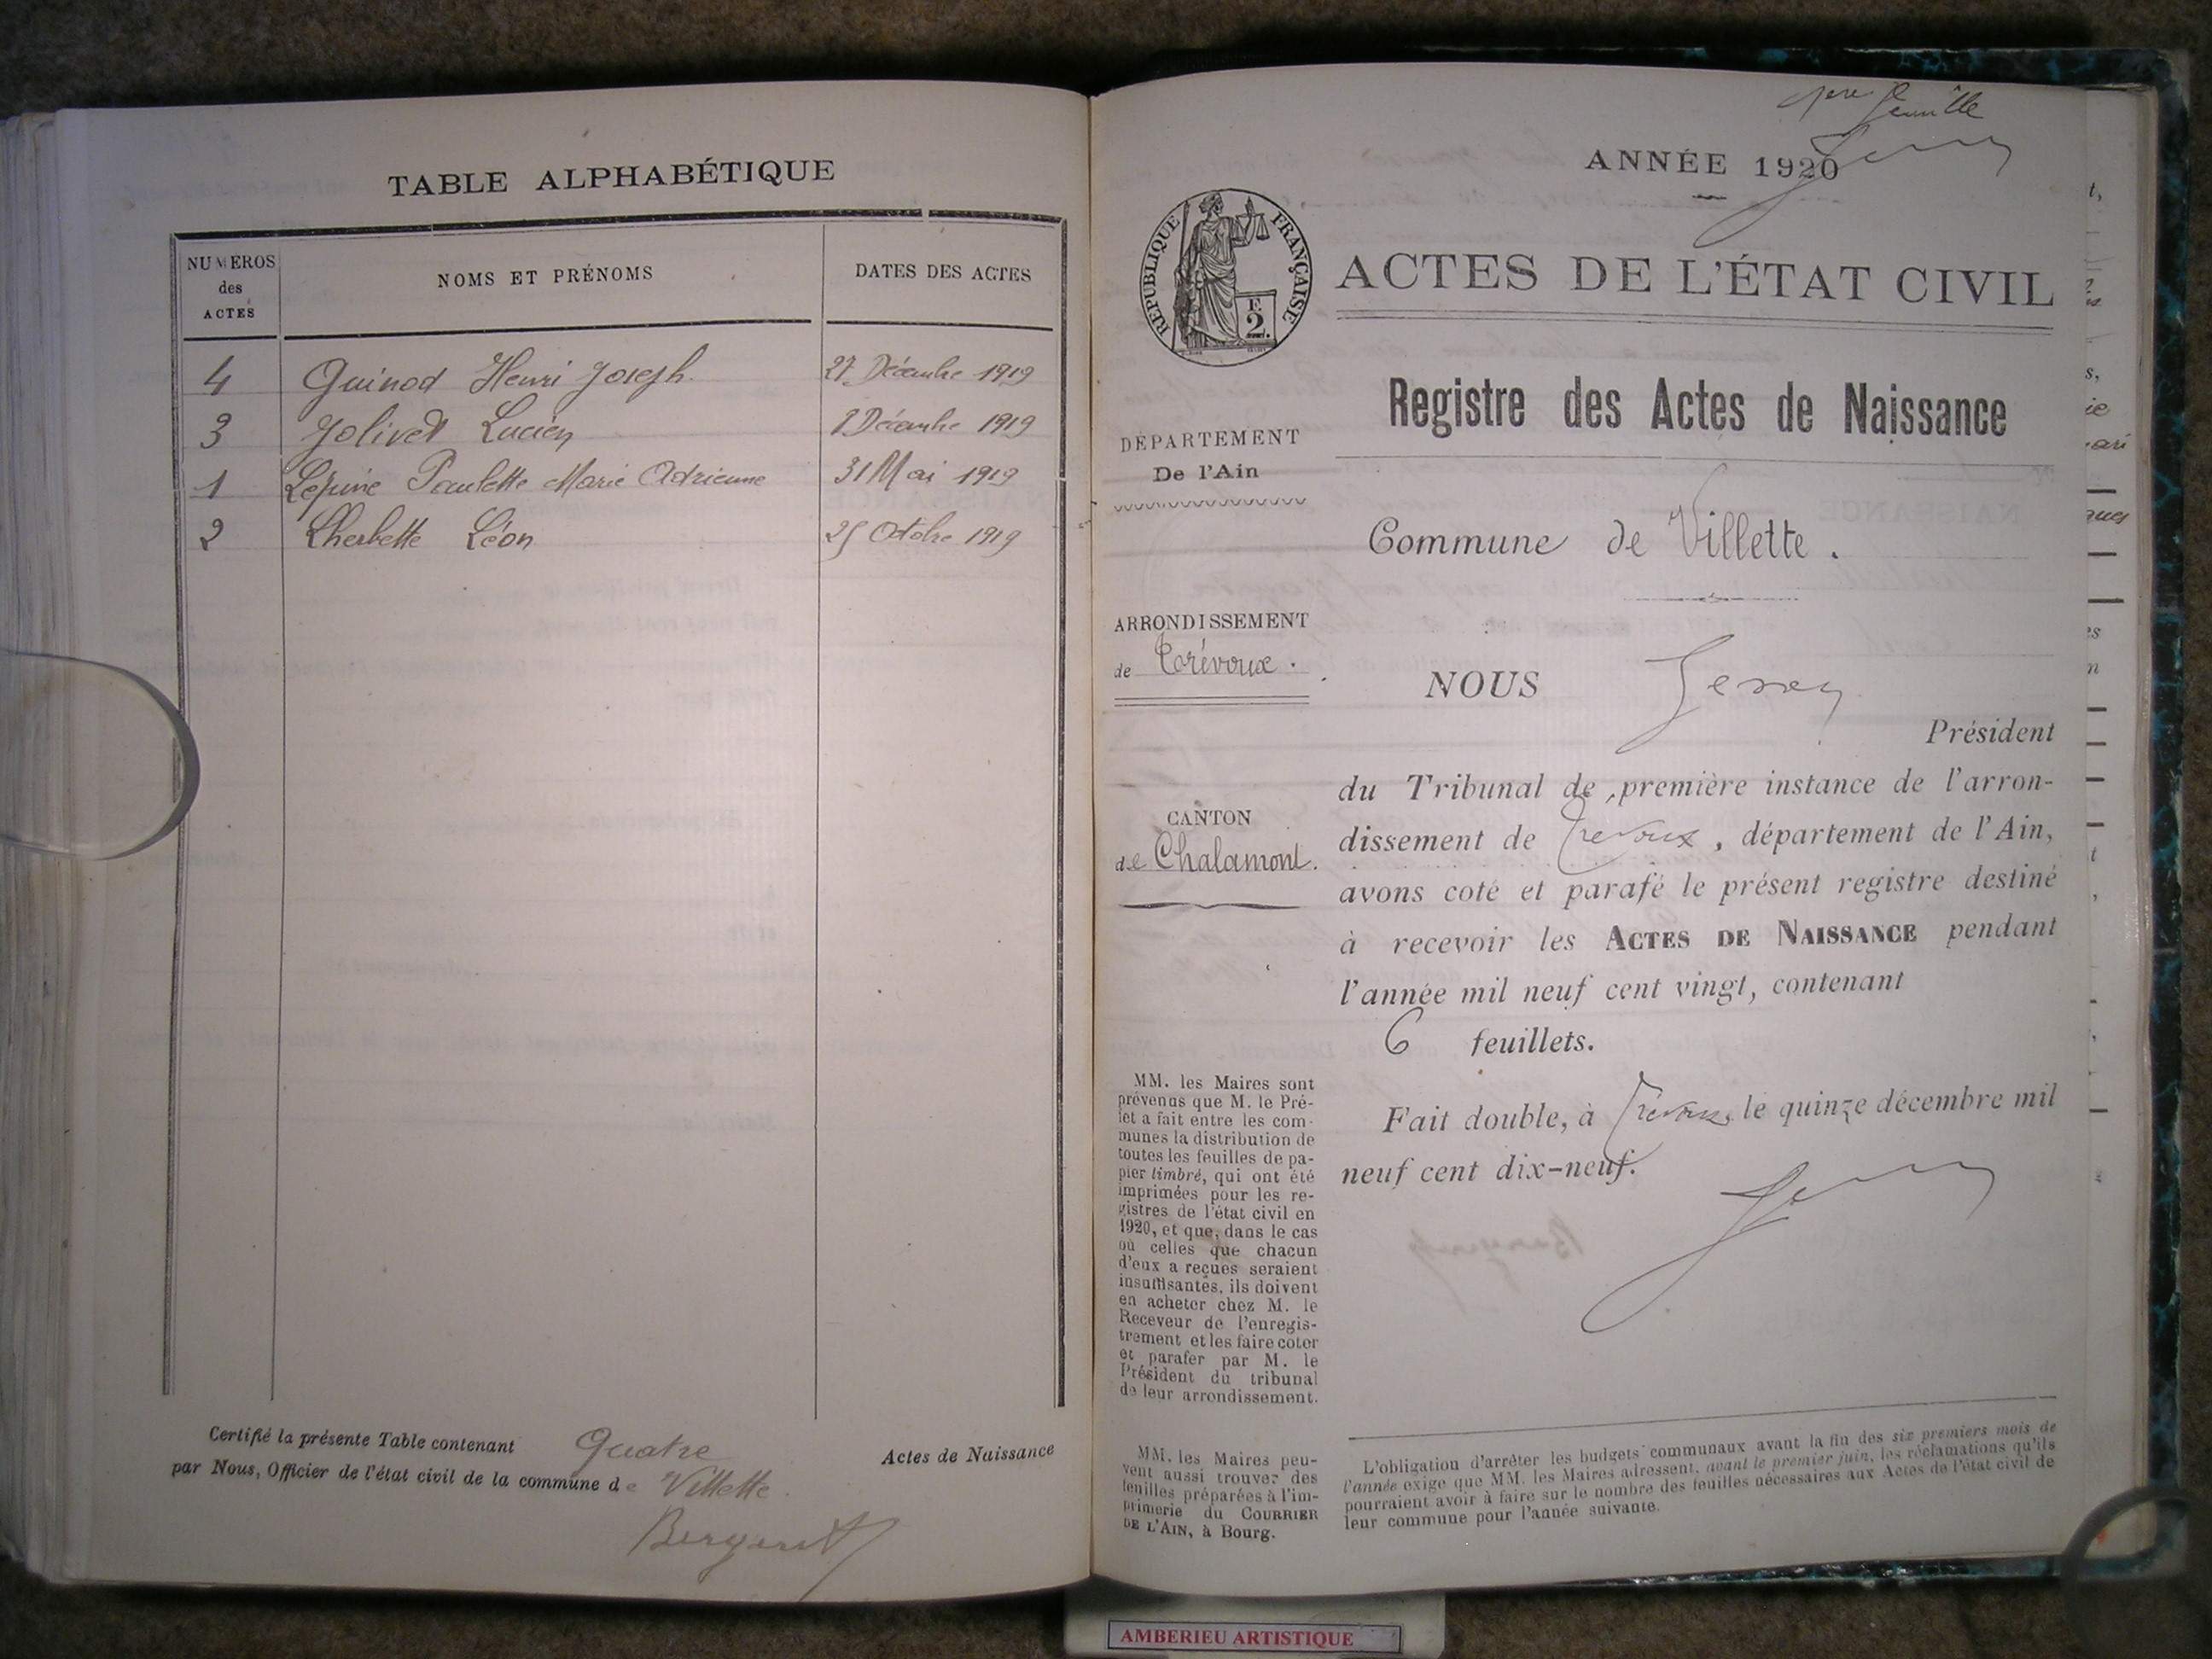 TABLE ALPHABÉTIQUE
NUMEROS
des
ACTES
NOMS ET PRÉNOMS
DATES DES ACTES
4 Guinod Henri Joseph 27 Décembre 1919
3 Jolivet Lucien Décembre 1919
1 Lépine Paulette Marie Adrienne 31 Mai 1919
2 Lherbette Léon 25 Octobre 1919
Certifié la présente Table contenant Quatre Actes de Naissance
par Nous, Officier de l'état civil de la commune de Villette.
ANNÉE 1920
REPUBLIQUE FRANÇAISE
F.
2.
ACTES DE L'ÉTAT CIVIL
Registre des Actes de Naissance
DÉPARTEMENT
De l'Ain
Commune de Villette.
ARRONDISSEMENT
de Trévoux.
NOUS
Président
du Tribunal de première instance de l'arron-
dissement de Trevoux, département de l'Ain,
avons coté et parafé le présent registre destiné
à recevoir les ACTES DE NAISSANCE pendant
l'année mil neuf cent vingt, contenant
6 feuillets.
Fait double, à Trevoux, le quinze décembre mil
neuf cent dix-neuf.
CANTON
de Chalamont.
MM. les Maires sont
prévenus que M. le Pré-
fet a fait entre les com-
munes la distribution de
toutes les feuilles de pa-
pier timbré, qui ont été
imprimées pour les re-
gistres de l'état civil en
1920, et que, dans le cas
où celles que chacun
d'eux a reçues seraient
insuffisantes, ils doivent
en acheter chez M. le
Receveur de l'enregis-
trement et les faire coter
et parafer par M. le
Président du tribunal
de leur arrondissement.
MM. les Maires peu-
vent aussi trouver des
feuilles préparées à l'im-
primerie du COURRIER
DE L'AIN, à Bourg.
L'obligation d'arrêter les budgets communaux avant la fin des six premiers mois de
l'année exige que MM. les Maires adressent, avant le premier juin, les réclamations qu'ils
pourraient avoir à faire sur le nombre des feuilles nécessaires aux Actes de l'état civil de
leur commune pour l'année suivante.
AMBERIEU ARTISTIQUE